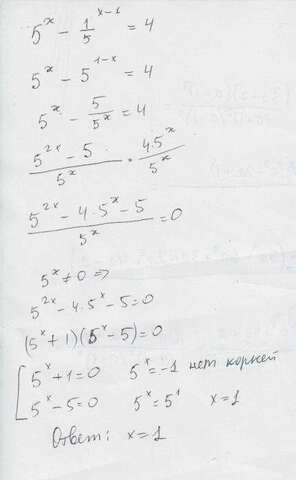 5^x - 1/5^(x-1) = 4
5^x - 5^(1-x) = 4
5^x - 5/5^x = 4
(5^(2x) - 5)/5^x = 4·5^x/5^x
(5^(2x) - 4·5^x - 5)/5^x = 0
5^x ≠ 0 =>
5^(2x) - 4·5^x - 5 = 0
(5^x + 1)(5^x - 5) = 0
[ 5^x + 1 = 0 5^x = -1 нет корней
5^x - 5 = 0 5^x = 5^1 x = 1
Ответ: x = 1